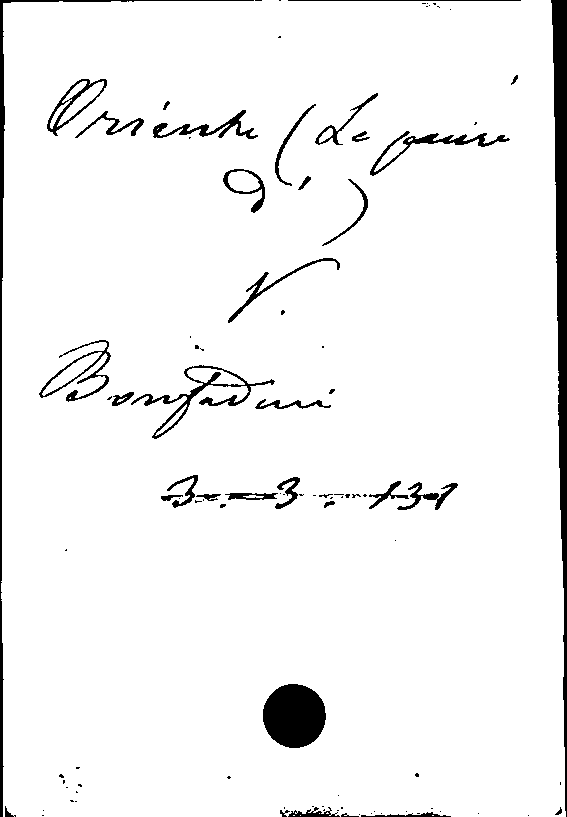 Oriente (Le guerre
d')
V.
Bonfadini
3. 3. 131